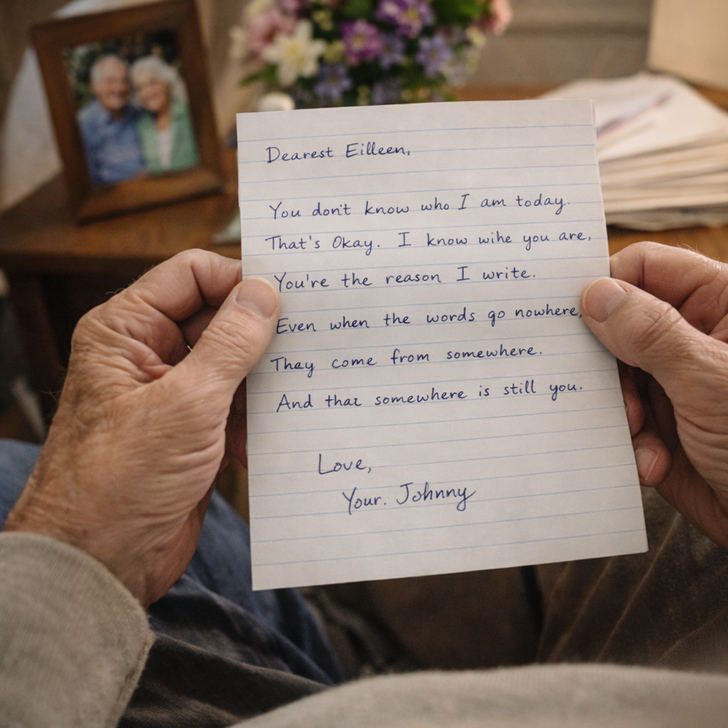 Dearest Eilleen,
You don't know who I am today.
That's Okay. I know wihe you are,
You're the reason I write.
Even when the words go nowhere,
They come from somewhere.
And that somewhere is still you.
Love,
Your. Johnny